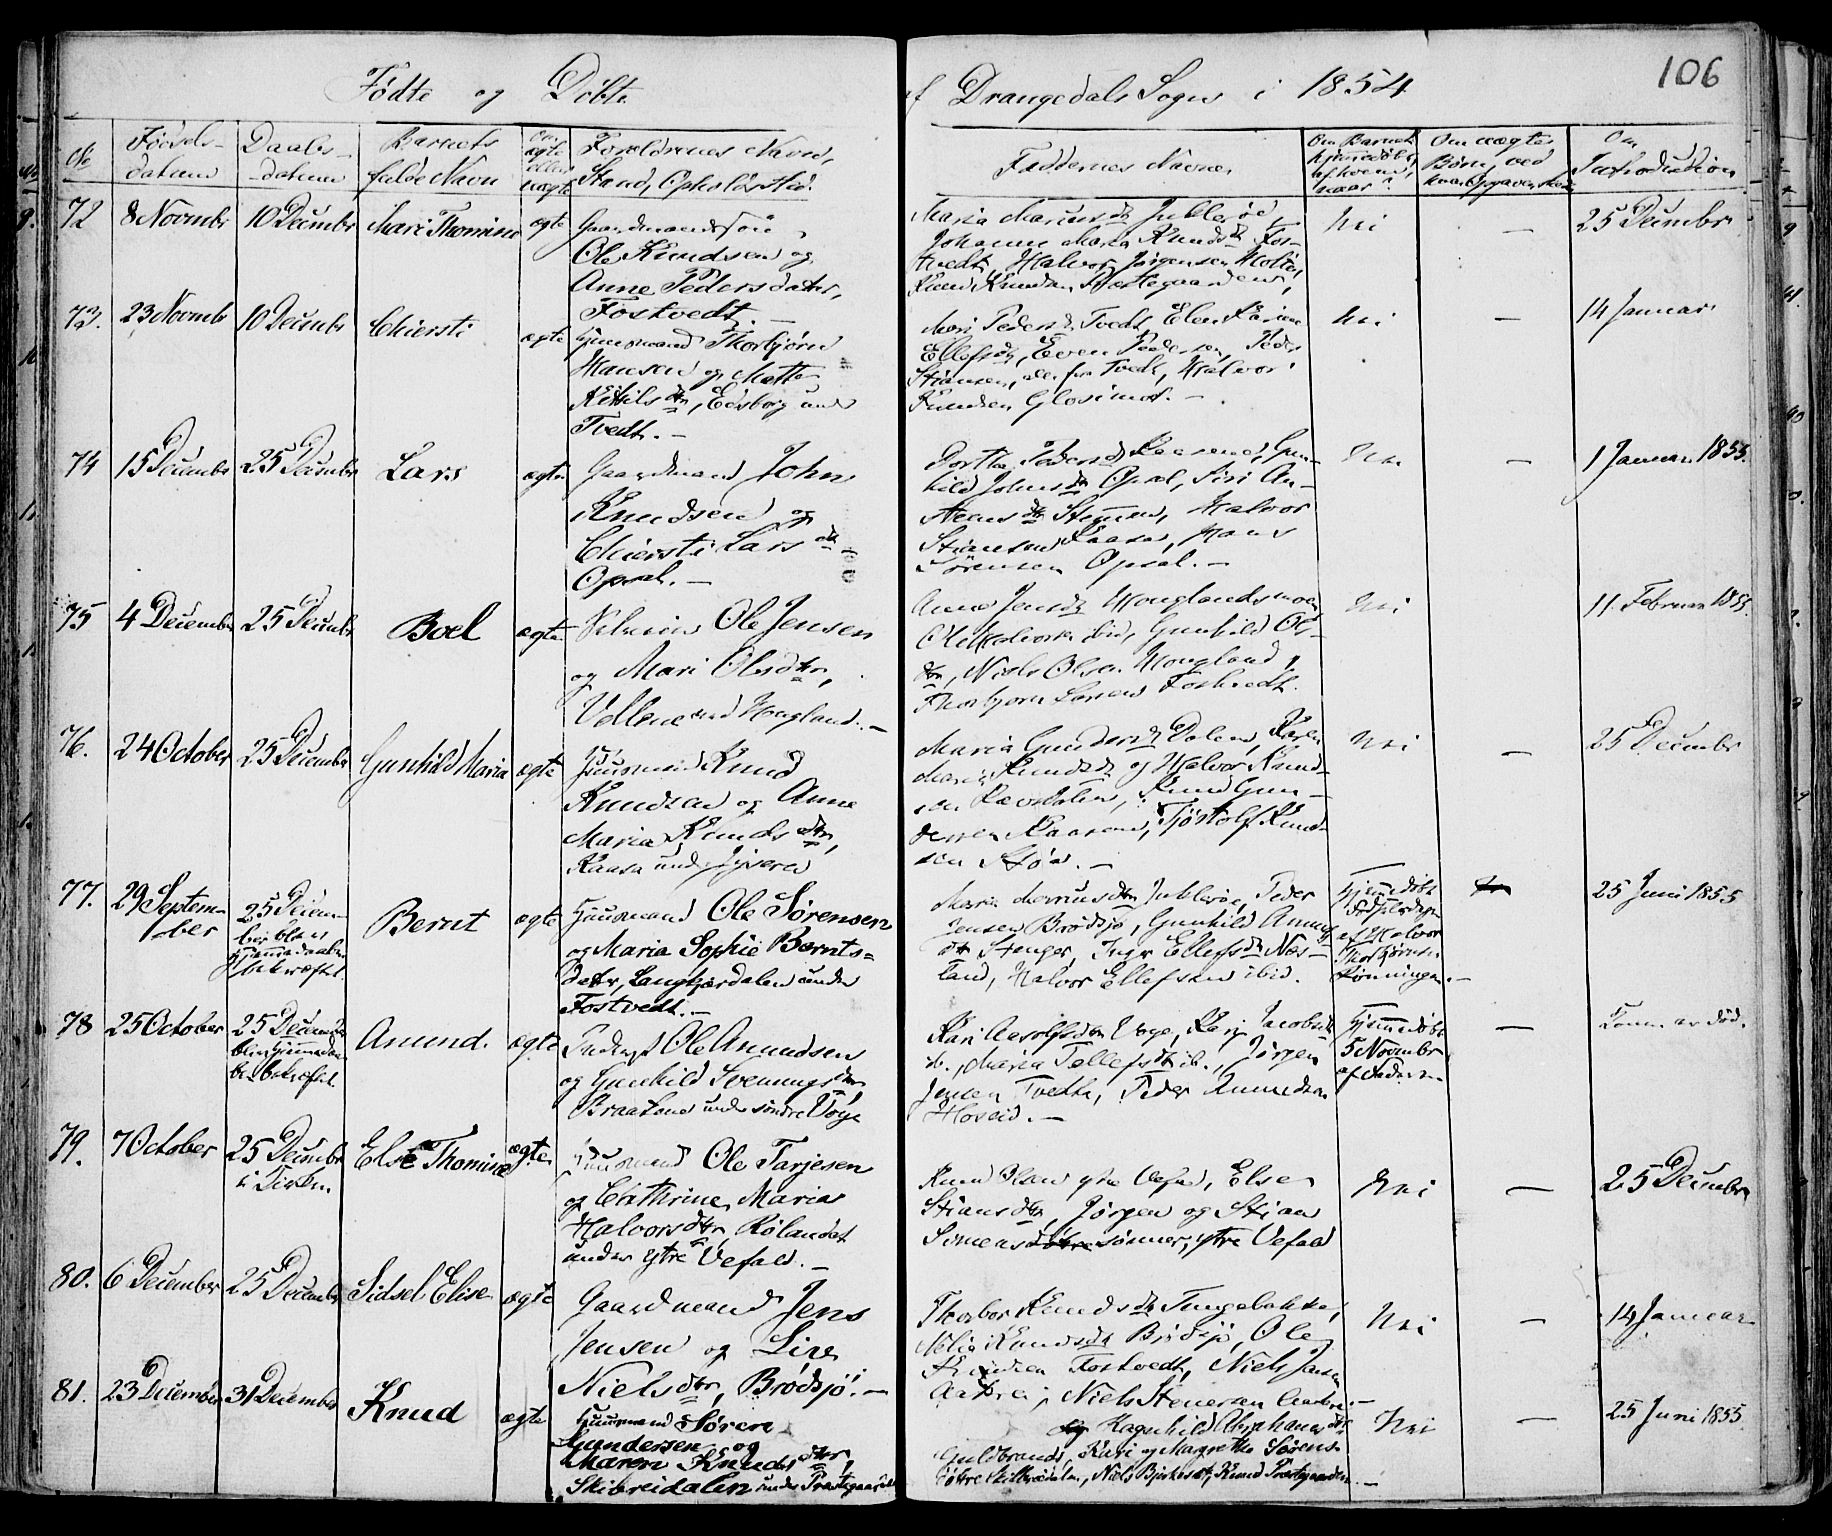 Fødte og Døbte
af Drangedals Sogn i 1854
106
No
Fødsels-
datum
Daabs-
datum
Barnets
fulde Navn
Om
ægte
eller
uægte
Forældrenes Navn,
Stand, Opholdssted.
Faddernes Navne
Om Barnet
hjemmedøbt,
af hvem,
naar?
Om uægte
Børn, ved
Om
Introduktion
72 8 Novembr 10 Decembr Mari Thomine ægte Gaardmandssøn
Ole Knudsen og
Anne Pedersdatter,
Fostvedt. —
Maria Mariusdtr Juklerød,
Johanne Maria Knudsdtr Fos-
tvedt, Halvor Jørgensen Holte,
Knud Knudsen Præstegaarden,
Nei — 25 Decembr
73. 23 Novembr 10 Decembr Chiersti ægte Huusmand Thorbjørn
Hansen og Mette
Kittilsdtr, Eidsborg under
Tvedt. —
Mari Pedersdtr Tvedt, Elen Karine
Ellefsdtr, Even Pedersen, Peder
Stiansen, alle fra Tvedt, Halvor
Knudsen Glosimot. —
Nei — 14 Januar
74 15 Decembr 25 Decembr Lars ægte Gaardmand John
Knudsen og
Chiersti Larsdtr
Opsal. —
Dorthe Pedersdtr Kaasene, Gun-
hild Johnsdtr Opsal, Siri An-
Halvor
Stiansen Kaasa, Hans
Sørensen Opsal. —
Nei — 1 Januar 1855.
75 4 December 25 Decembr Boel ægte Ole Jensen
og Mari Olsdtr,
Vellene under Hougland. —
Anne Jensdtr Houglandsmoen,
Ole Halvorsen ibid, Gunhild Ols-
dtr, Niels Olsen Hougland,
Thorbjørn Larsen Fostvedt.
Nei 11 Februar 1855.
76. 24 October 25 Decembr Gunhild Maria ægte Huusmand Knud
Knudsen og Anne
Maria Knudsdtr,
Kaasa under
Maria Gundersdtr Dalen, Karen
Maria Knudsdtr og Halvor Knud-
sen Knud Gun-
dersen Kaasene, Tjøstolf Knud-
sen
Nei — 25 Decembr
77. 29 Septem-
ber
25 Decem-
ber blev
hjemmedaaben
bekræftet.
Bernt ægte Huusmand Ole Sørensen
og Maria Sophie Bernts-
datr, Langkjærdalen under
Fostvedt. —
Maria Mariusdtr Juklerød, Peder
Jensen Brødsjø, Gunhild Amunds
dtr Stenger, Inger Ellefsdtr Næs-
land, Halvor Ellefsen ibid.
Hjemmedøbt
Fødselsdagen
af Halvor
Thorbjørnsen
Rønningen. —
25 Juni 1855
78 25 October 25 Decembr
blev hjemmedaa-
ben bekræftet
Amund. ægte Inderst Ole Amundsen
og Gunhild Svenungsdtr,
Braatane under søndre Voje
Kari Aasolfsdtr Voje, Kari Jacobsdtr
ib., Maria Tellefsdtr ib., Jørgen
Jensen Tvedte, Peder Amundsen
Hoseid. —
Hjemmedøbt
5 Novembr
af Faderen
— Konen er død.
79. 7 October 25 Decembr
i Kirken
Else Thomine ægte Huusmand Ole Tarjesen
og Cathrine Maria
Halvorsdtr Rølandet
under ytre Vefald. —
ytre Vefald, Else
Stiansdtr, Jørgen og Stian
Simens sønner, ytre Vefald
Nei — 25 Decembr
80. 6 December 25 Decembr Sidsel Elise ægte Gaardmand Jens
Jensen og Live
Nielsdtr, Brødsjø. —
Thorbor Knudsdtr Tungebakke,
Knudsdtr Brødsjø, Ole
Knudsen Fostvedt, Niels Jensen
Niels Stenersen
Nei — 14 Januar
81. 23 December 31 December Knud ægte Huusmand Søren
Gundersen og
Maren Knudsdtr,
Skibreidalen under Præstegaarden
Ragnhild Abrahamsdtr
Guldbrands, Kari og Margrethe Sørens-
døtre Skibredalen, Niels Birkeset, Knud Præstegaarden. —
Nei — 25 Juni 1855